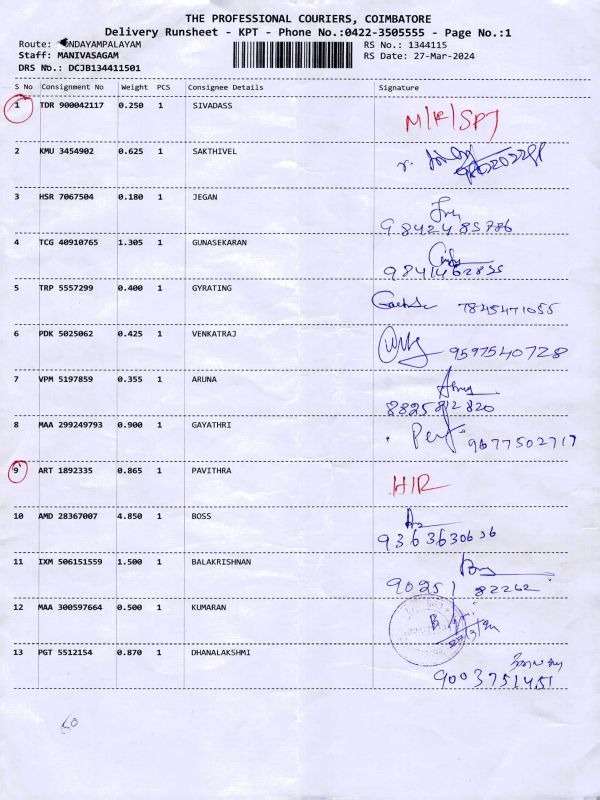 THE PROFESSIONAL COURIERS, COIMBATORE
Delivery Runsheet - KPT - Phone No.:0422-3505555 - Page No.:1
Route: ONDAYAMPALAYAM RS No.: 1344115
Staff: MANIVASAGAM RS Date: 27-Mar-2024
DRS No.: DCJB134411501
S No Consignment No Weight PCS Consignee Details Signature
1 TDR 900042117 0.250 1 SIVADASS M/R/SPT
2 KMU 3454902 0.625 1 SAKTHIVEL
3 HSR 7067504 0.180 1 JEGAN
9842485786
4 TCG 40910765 1.305 1 GUNASEKARAN
9841462855
5 TRP 5557299 0.400 1 GYRATING 7845471055
6 PDK 5025062 0.425 1 VENKATRAJ 9597540728
7 VPM 5197859 0.355 1 ARUNA
8825812820
8 MAA 299249793 0.900 1 GAYATHRI 9677502717
9 ART 1892335 0.865 1 PAVITHRA H/R
10 AMD 28367007 4.850 1 BOSS
9363630636
11 IXM 506151559 1.500 1 BALAKRISHNAN
90251 82262
12 MAA 300597664 0.500 1 KUMARAN
13 PGT 5512154 0.870 1 DHANALAKSHMI
9003751451